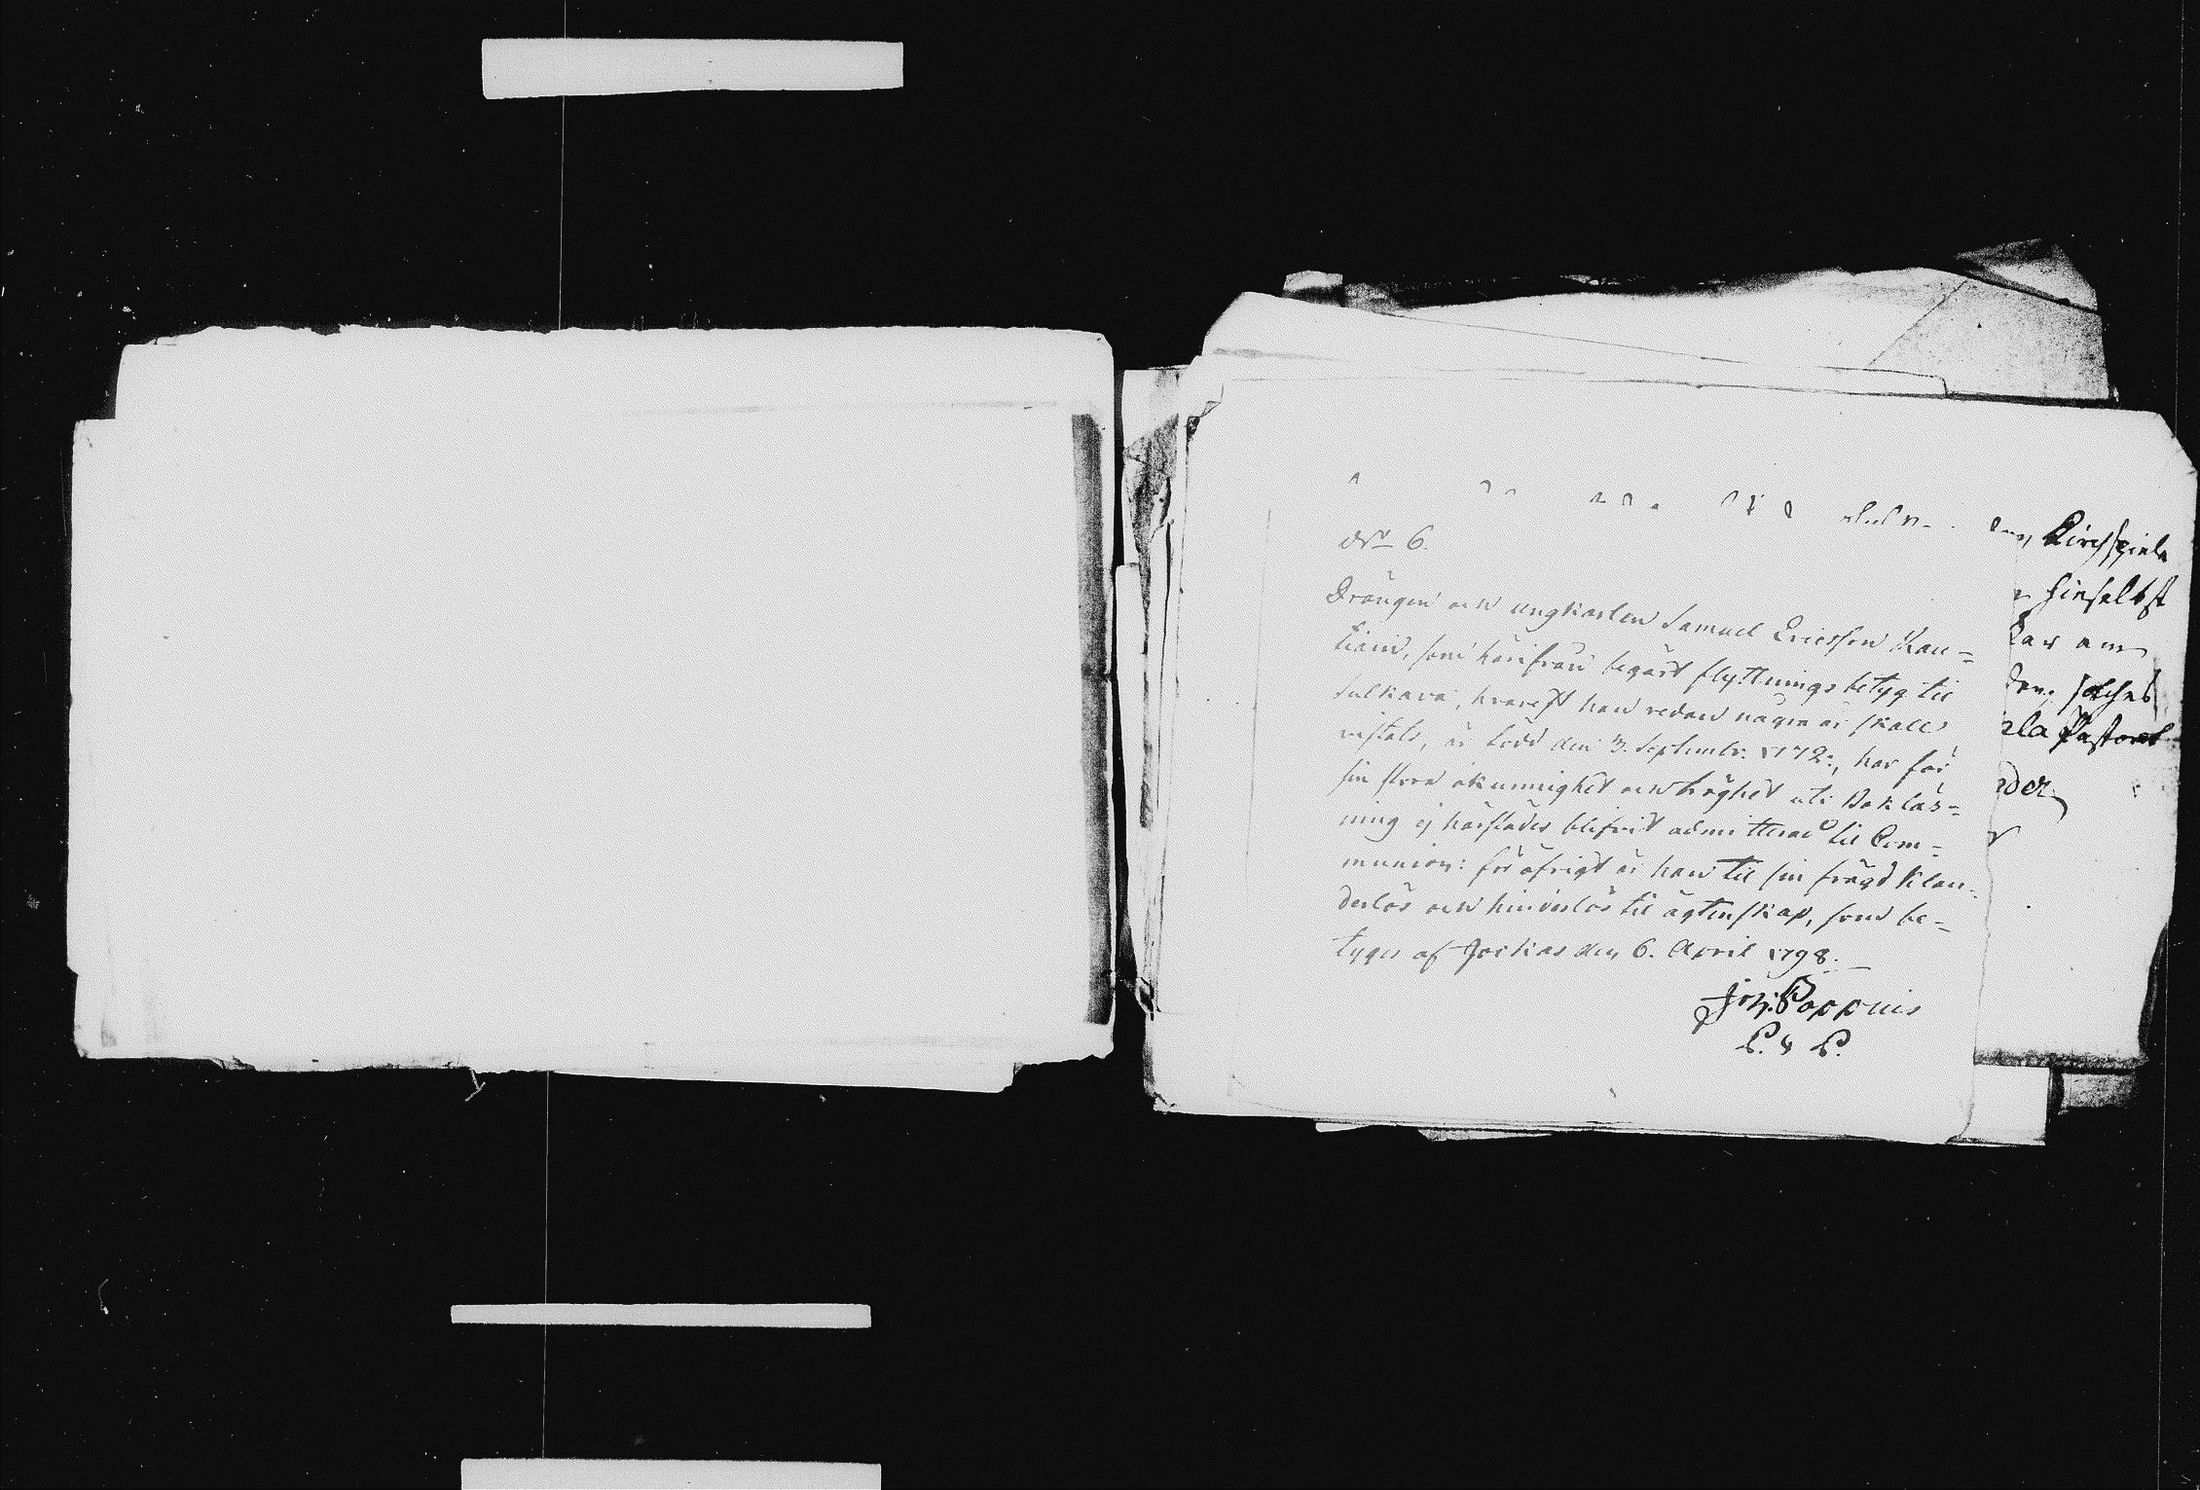 No 6.
Drängen och ungkarlen Samuel Ericsson Kau=
tiain, som härifrån begärt flyttningsbetyg til
Sulkava, hvarest han redan några år skall
vistats, är född den 3. Septembr. 1772., har för
sin stora okunnighet och tröghet uti Bokläs=
ning ej härstädes blifvit admitterad til Com=
munion: för öfrigt är han til sin frägd klan=
derlös och hinderlös til ägtenskap, som be=
tyges af Jockas den 6. April 1798.
Jos. Poppius
P. & P.
Kirchspiele
hieselbst
solches
Pastorat